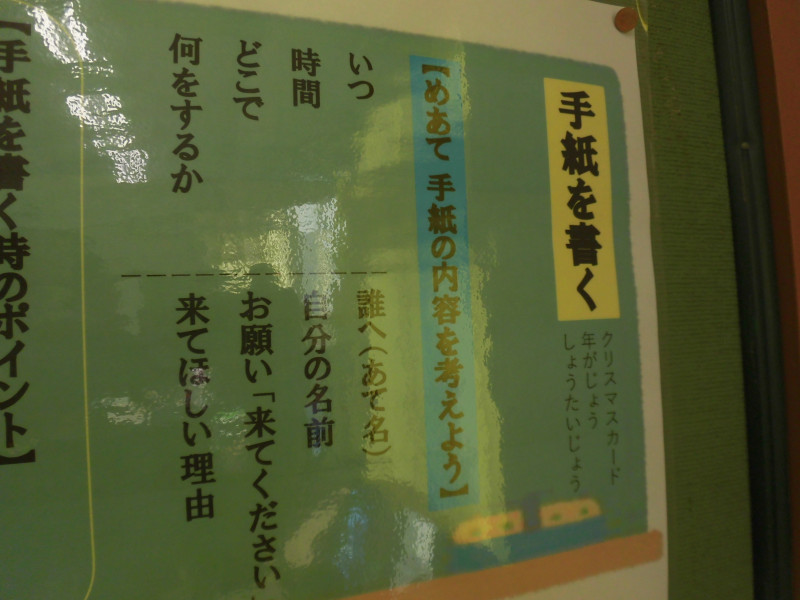 手紙を書く
クリスマスカード
年がじょう
しょうたいじょう
【めあて 手紙の内容を考えよう】
いつ
時間
どこで
何をするか
誰へ(あて名)
自分の名前
お願い「来てください
来てほしい理由
【手紙を書く時のポイント】